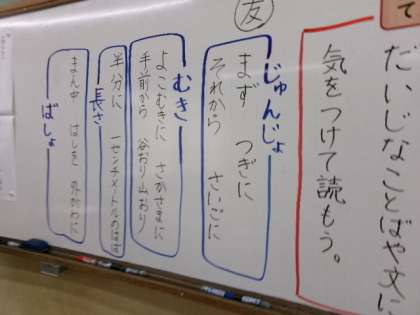 て
たいじなことばや文に
気をつけて読もう。
友
じゅんじょ
まず つぎに
それから さいごに
むき
よこむきに さかさまに
手前から 谷おり山おり
長さ
半分に 一センチメートルのはばで
ばしょ
まん中 はしを